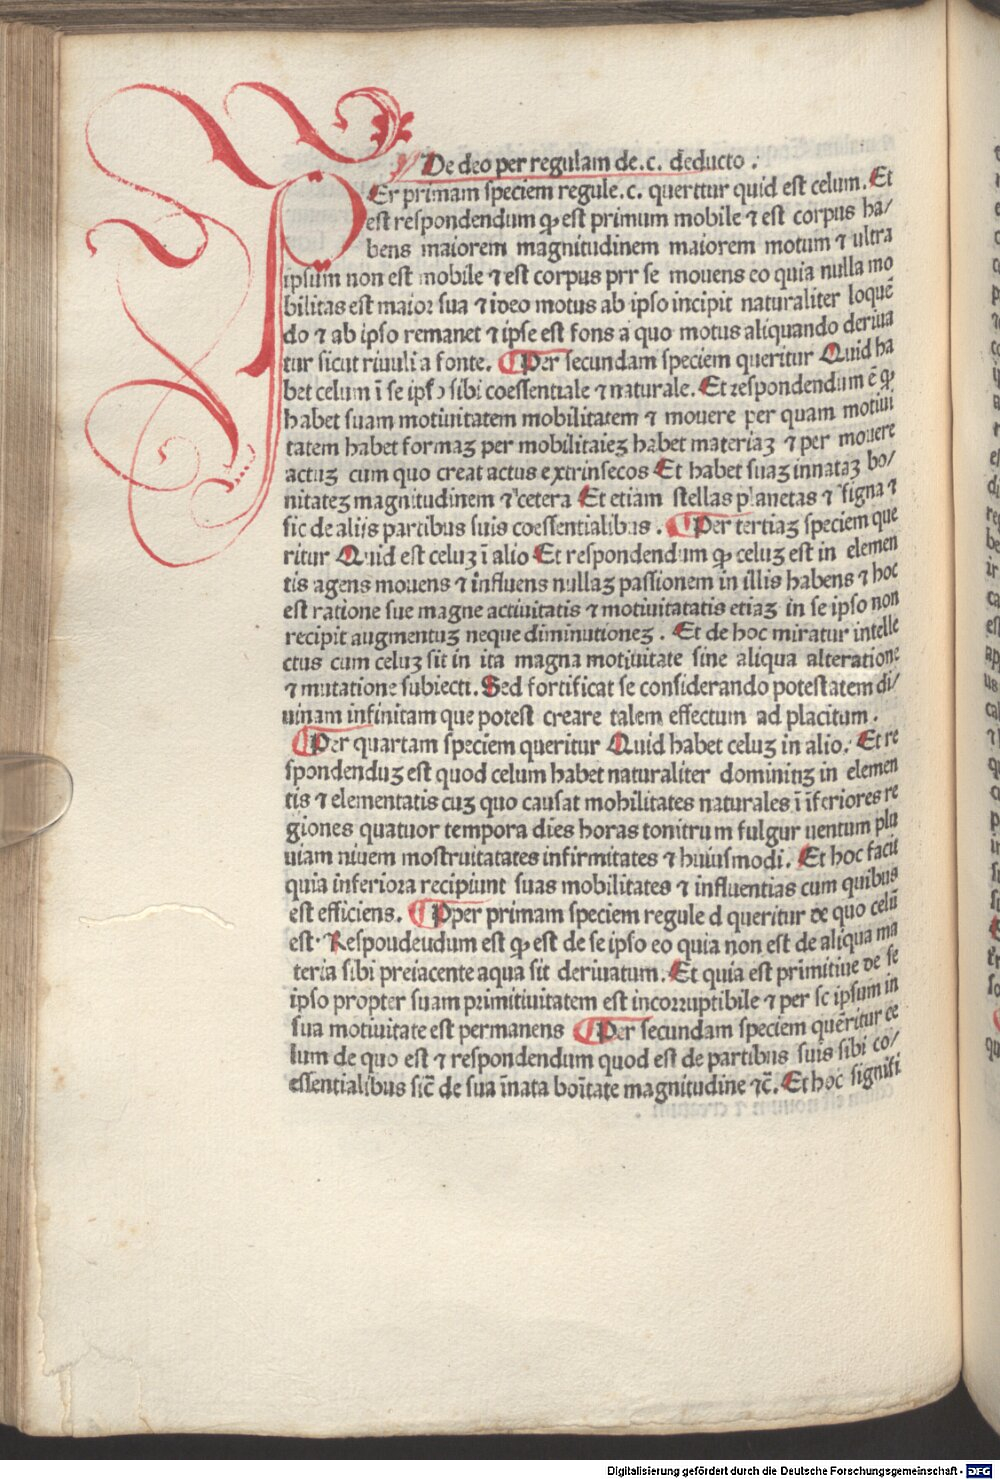 De deo per regulam de .c. deducto .
PEr primam speciem regule .c. querttur quid est celum. Et
est respondendum ꝙ est primum mobile ⁊ est corpus ha/
bens maiorem magnitudinem maiorem motum ⁊ ultra
ipsum non est mobile ⁊ est corpus prr se mouens eo quia nulla mo
bilitas est maior sua ⁊ ideo motus ab ipso incipit naturaliter loquē
do ⁊ ab ipso remanet ⁊ ipse est fons a quo motus aliquando deriua
tur sicut riuuli a fonte. ¶ Per secundam speciem queritur Quid ha
bet celum ī se ipso sibi coessentiale ⁊ naturale. Et respondendum ē ꝙ
habet suam motiuitatem mobilitatem ⁊ mouere per quam motiui
tatem habet formaʒ per mobilitateʒ habet materiaʒ ⁊ per mouere
actuʒ cum quo creat actus extrinsecos Et habet suaʒ innataʒ bo/
nitateʒ magnitudinem ⁊ cetera Et etiam stellas planetas ⁊ signa ⁊
sic de alijs partibus suis coessentialibus . ¶ Per tertiaʒ speciem que
ritur Quid est celuʒ ī alio Et respondendum ꝙ celuʒ est in elemen
tis agens mouens ⁊ influens nullaʒ passionem in illis habens ⁊ hoc
est ratione sue magne actiuitatis ⁊ motiuitatatis etiaʒ in se ipso non
recipit augmentuʒ neque diminutioneʒ . Et de hoc miratur intelle
ctus cum celuʒ sit in ita magna motiuitate sine aliqua alteratione
⁊ mutatione subiecti. Sed fortificat se considerando potestatem di/
uinam infinitam que potest creare talem effectum ad placitum .
¶ Per quartam speciem queritur Quid habet celuʒ in alio. Et re
spondenduʒ est quod celum habet naturaliter dominiuʒ in elemen
tis ⁊ elementatis cuʒ quo causat mobilitates naturales ī īferiores re
giones quatuor tempora dies horas tonitrum fulgur uentum plu
uiam niuem mostruitatates infirmitates ⁊ huiusmodi. Et hoc facit
quia inferiora recipiunt suas mobilitates ⁊ influentias cum quibus
est efficiens. ¶ Pper primam speciem regule d queritur de quo celū
est. Respoudeudum est ꝙ est de se ipso eo quia non est de aliqua ma
teria sibi preiacente aqua sit deriuatum. Et quia est primitiue de se
ipso propter suam primitiuitatem est incorruptibile ⁊ per se ipsum in
sua motiuitate est permanens ¶ Per secundam speciem quēritur ce
lum de quo est ⁊ respondendum quod est de partibus suis sibi co/
essentialibus sic̄ de sua īnata boītate magnitudine ⁊c̄. Et hoc signifi
Digitalisierung gefördert durch die Deutsche Forschungsgemeinschaft - DFG